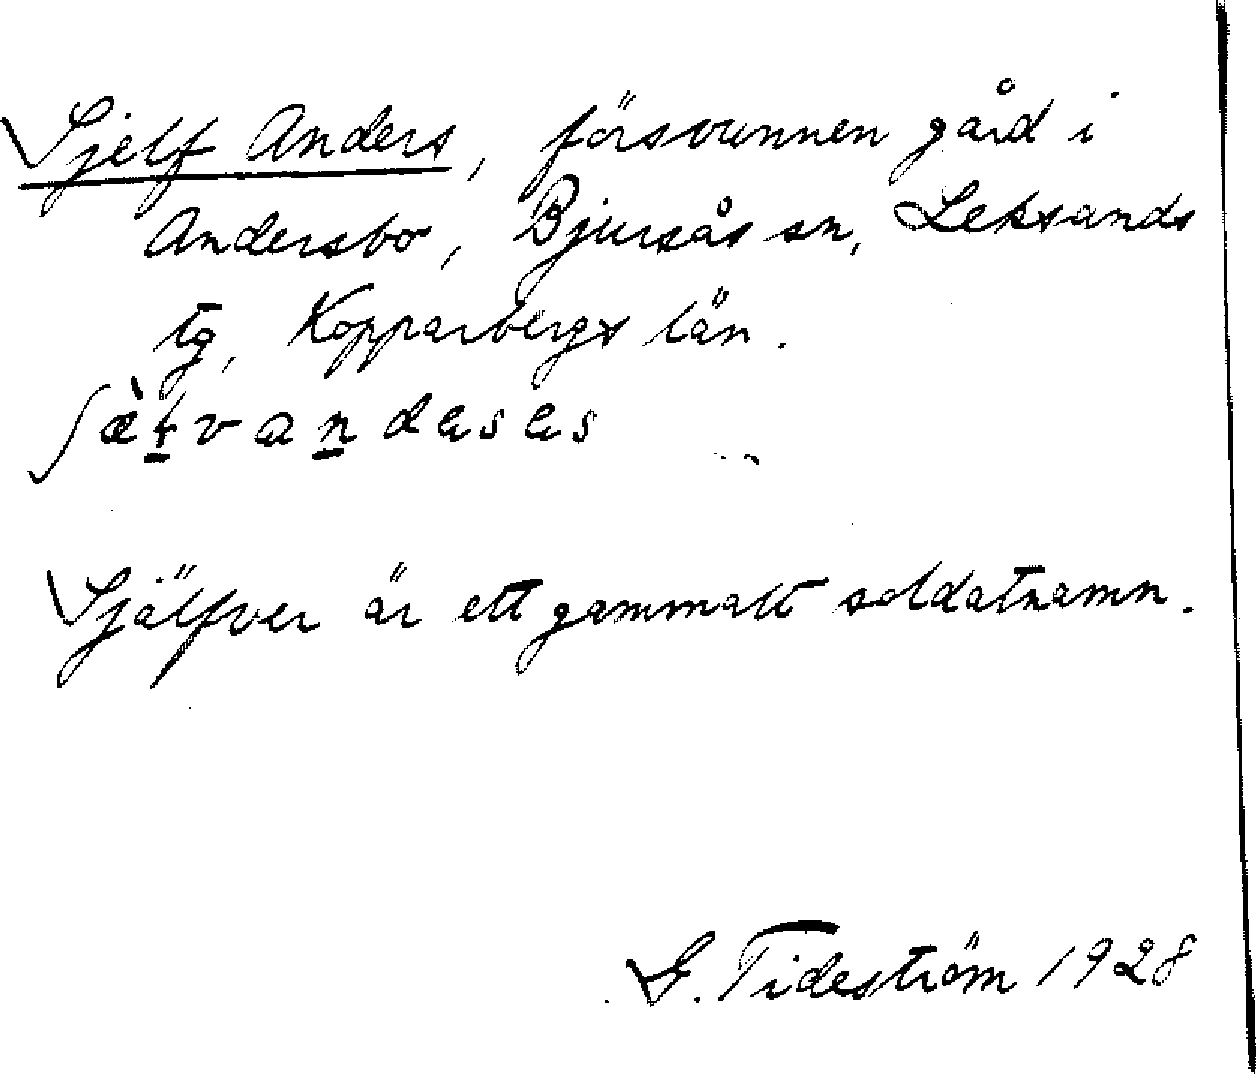 Sjelf Anders, försvunnen gård i
Andersbo, Bjursås sn, Leksands
tg, Kopparbergs län.
Själfver är ett gammalt soldatnamn.
G. Tideström 1928